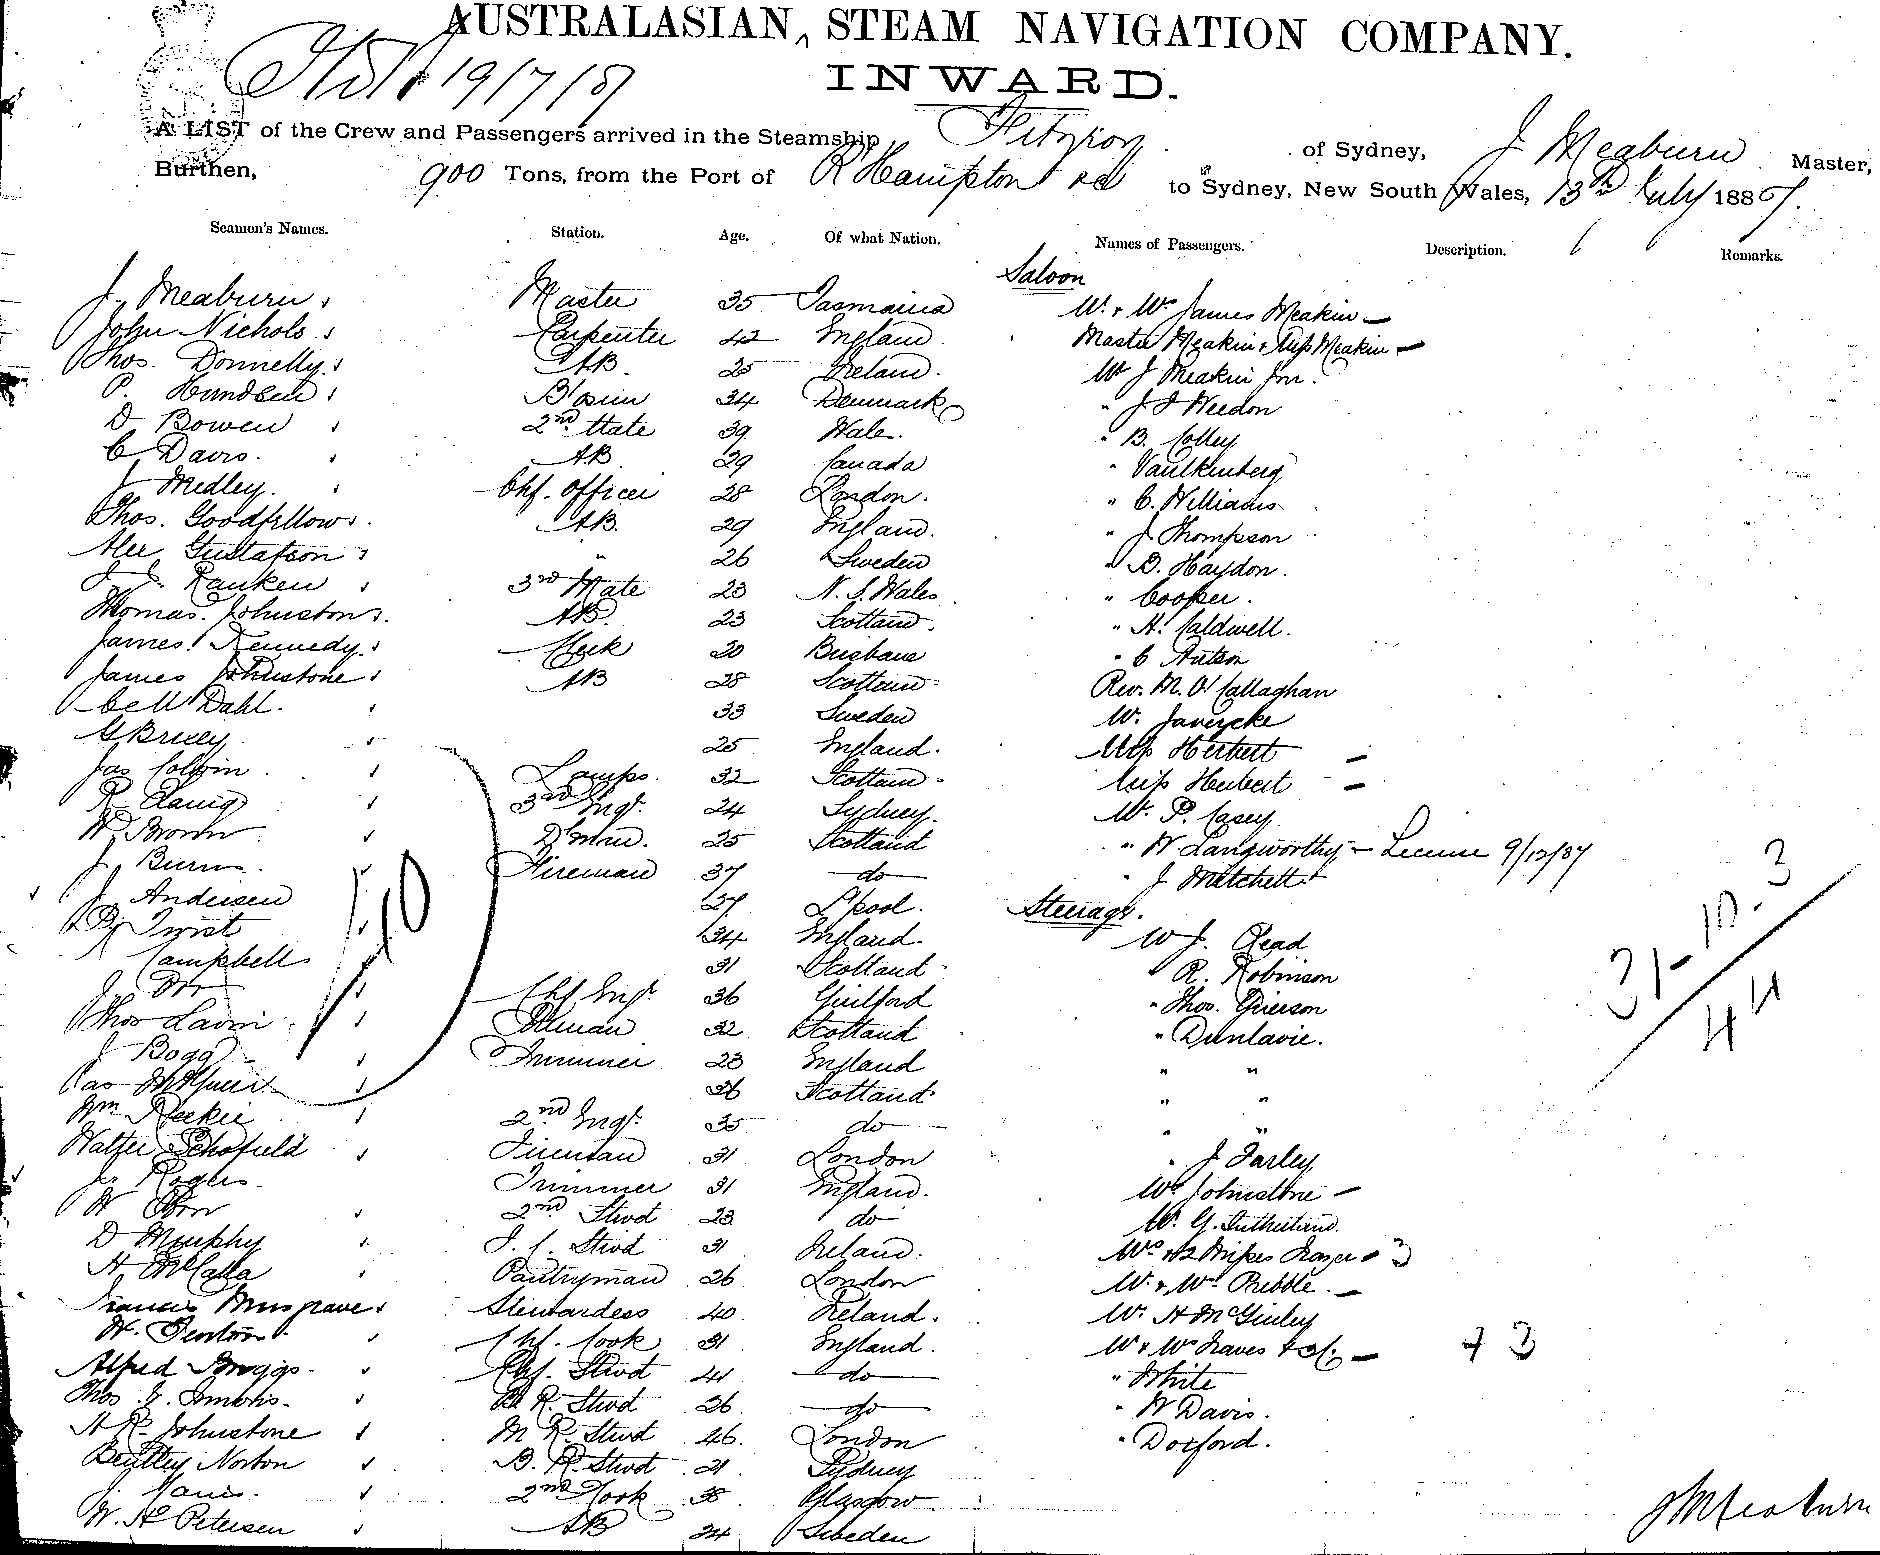 AUSTRALASIAN STEAM NAVIGATION COMPANY.
INWARD.
19/7/87
A LIST of the Crew and Passengers arrived in the Steamship Fitzroy of Sydney, J Meaburn Master,
Burthen, 900 Tons, from the Port of RHampton to Sydney, New South Wales, 13th July 1887.
Seamen's Names. Station. Age. Of what Nation. Names of Passengers. Description. Remarks.
Saloon
J. Meaburn Master 35 Tasmania Mr & Mrs James Meakin
John Nichols Carpenter 42 England Master Meakin & Miss Meakin
Thos. Donnelly AB. 25 Ireland. Mr J Meakin Jnr.
P. B'osun 34 Denmark " Weedon
D Bowen 2nd Mate 39 Wales. " B. Colley
C Davis. AB 29 Canada " Vaulkenberg
J Medley. Chf. Officer 28 London. " C. Williams
Thos. Goodfellow AB. 29 England. " J Thompson
Alec Gustafson " 26 Sweden " B. Haydon.
J J. Ranken 3rd Mate 23 N. S. Wales " Cooper.
Thomas Johnston AB. 23 Scotland. " A. Caldwell.
James Kennedy Clerk 20 Brisbane " C
James Johnstone AB 28 Scotland Rev. M. O'Callaghan
Dahl. 33 Sweden Mr.
G 25 England. Mrs Herbert
Jas Colvin Lamps. 32 Scotland Miss Herbert
R 3rd Engr. 24 Sydney. Mr. P. Casey
W Brown D'man. 25 Scotland " W. Langworthy - License 9/12/87
J. Burns Fireman 37 do " J Mitchell
Steerage.
J. Andersen 27 L'pool.
Twist 34 England. Mr J. Read
Campbell 31 Scotland " R. Robinson
J. Orr Chf Engr. 36 Guilford " Thos. Grierson
Thos Lavin 32 Scotland " Dunlavie.
J Bogg Trimmer 23 England " "
Jas 36 Scotland " "
Wm Reekie 2nd Engr. 35 do " "
Walter Schofield Fireman 31 London " J Farley
J. Rogers Trimmer 31 England. Mrs Johnstone
W 2nd Stwd 23 do Mr. G. Sutherland
D Murphy Stwd 31 Ireland. Mrs & 2 Misses 3
A McCalla Pantryman 26 London Mr. & Mrs Pribble
Francis Musgrave Stewardess 40 Ireland. Mr. A McGinley
W. Fenton Chf. Cook 31 England Mr & Mrs Graves + 3
Alfred Chf. Stwd 41 do " White
Thos J. Stwd 26 do " W Davis.
A R. Johnstone M R. Stwd 46. London " Doxford.
Bentley Norton B. R. Stwd 21 Sydney
J. 2nd Cook 38 Glasgow
W. H Petersen AB 24 Sweden
10
31-10.3
44
J Meaburn